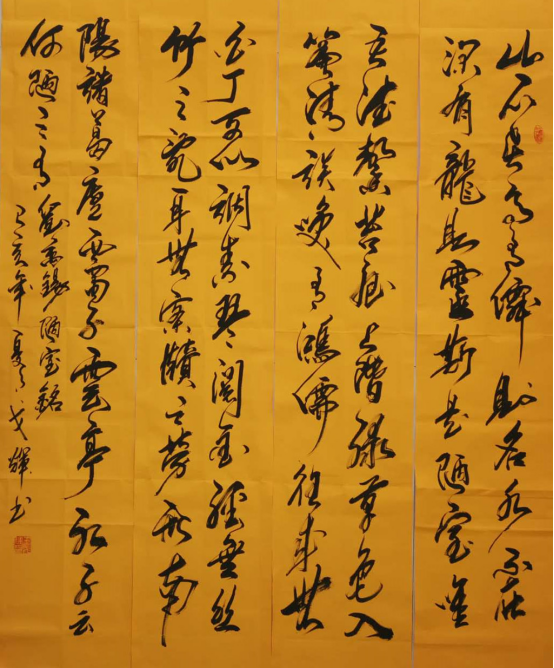 山不在高有僊則名水不在
深有龍則靈斯是陋室唯
吾德馨苔痕上階綠草色入
簾青談笑有鴻儒往來無
白丁可以調素琴閱金經無絲
竹之亂耳無案牘之勞形南
陽諸葛廬西蜀子雲亭孔子云
何陋之有
劉禹錫陋室銘
己亥年夏月戈輝書